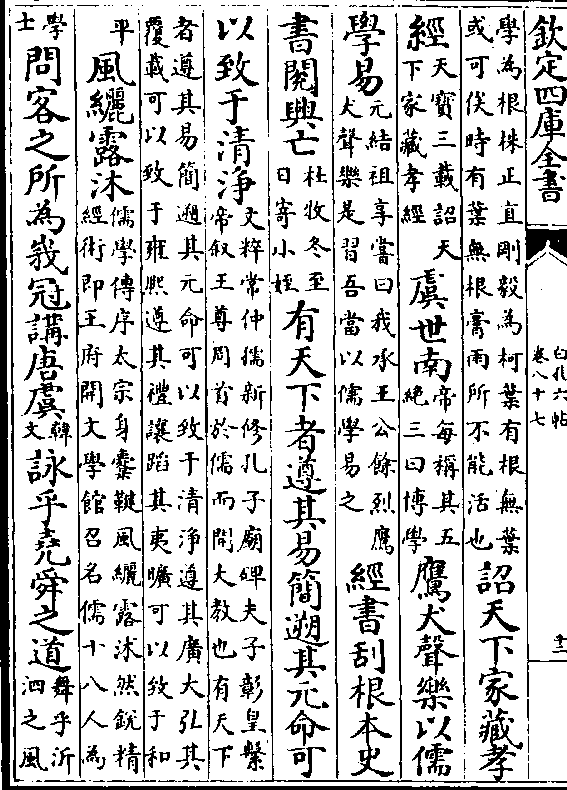 欽定四庫全書
白孔六帖
卷八十七
十二
學為根株正直剛毅為柯葉有根無葉
或可俟時有葉無根膏雨所不能活也
詔天下家藏孝
經
天寶三載詔天
下家藏孝經
虞世南
帝每稱其五
絶三曰博學
鷹犬聲樂以儒
學易
元結祖享嘗曰我承王公餘烈鷹
犬聲樂是習吾當以儒學易之
經書刮根本史
書閱興亡
杜牧冬至
日寄小姪
有天下者遵其易簡遡其元命可
以致于清淨
文粹常仲孺新修孔子廟碑夫子彰皇繫
帝叙王尊周首於儒而開大教也有天下
者遵其易簡遡其元命可以致于清淨遵其廣大弘其
覆載可以致于雍熙遵其禮讓蹈其夷曠可以致于和
平
風纚露沐
儒學傳序太宗身櫜鞬風纚露沐然銳精
經術即王府開文學館召名儒十八人為
學
士
問客之所為峩冠講唐虞
韓
文
詠乎堯舜之道
舞乎沂
泗之風